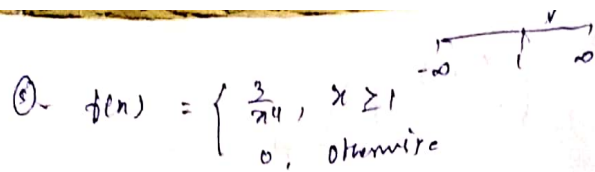 -∞ 1 ∞
⑤. f(x) = { 3/x⁴, x ≥ 1
0, otherwise